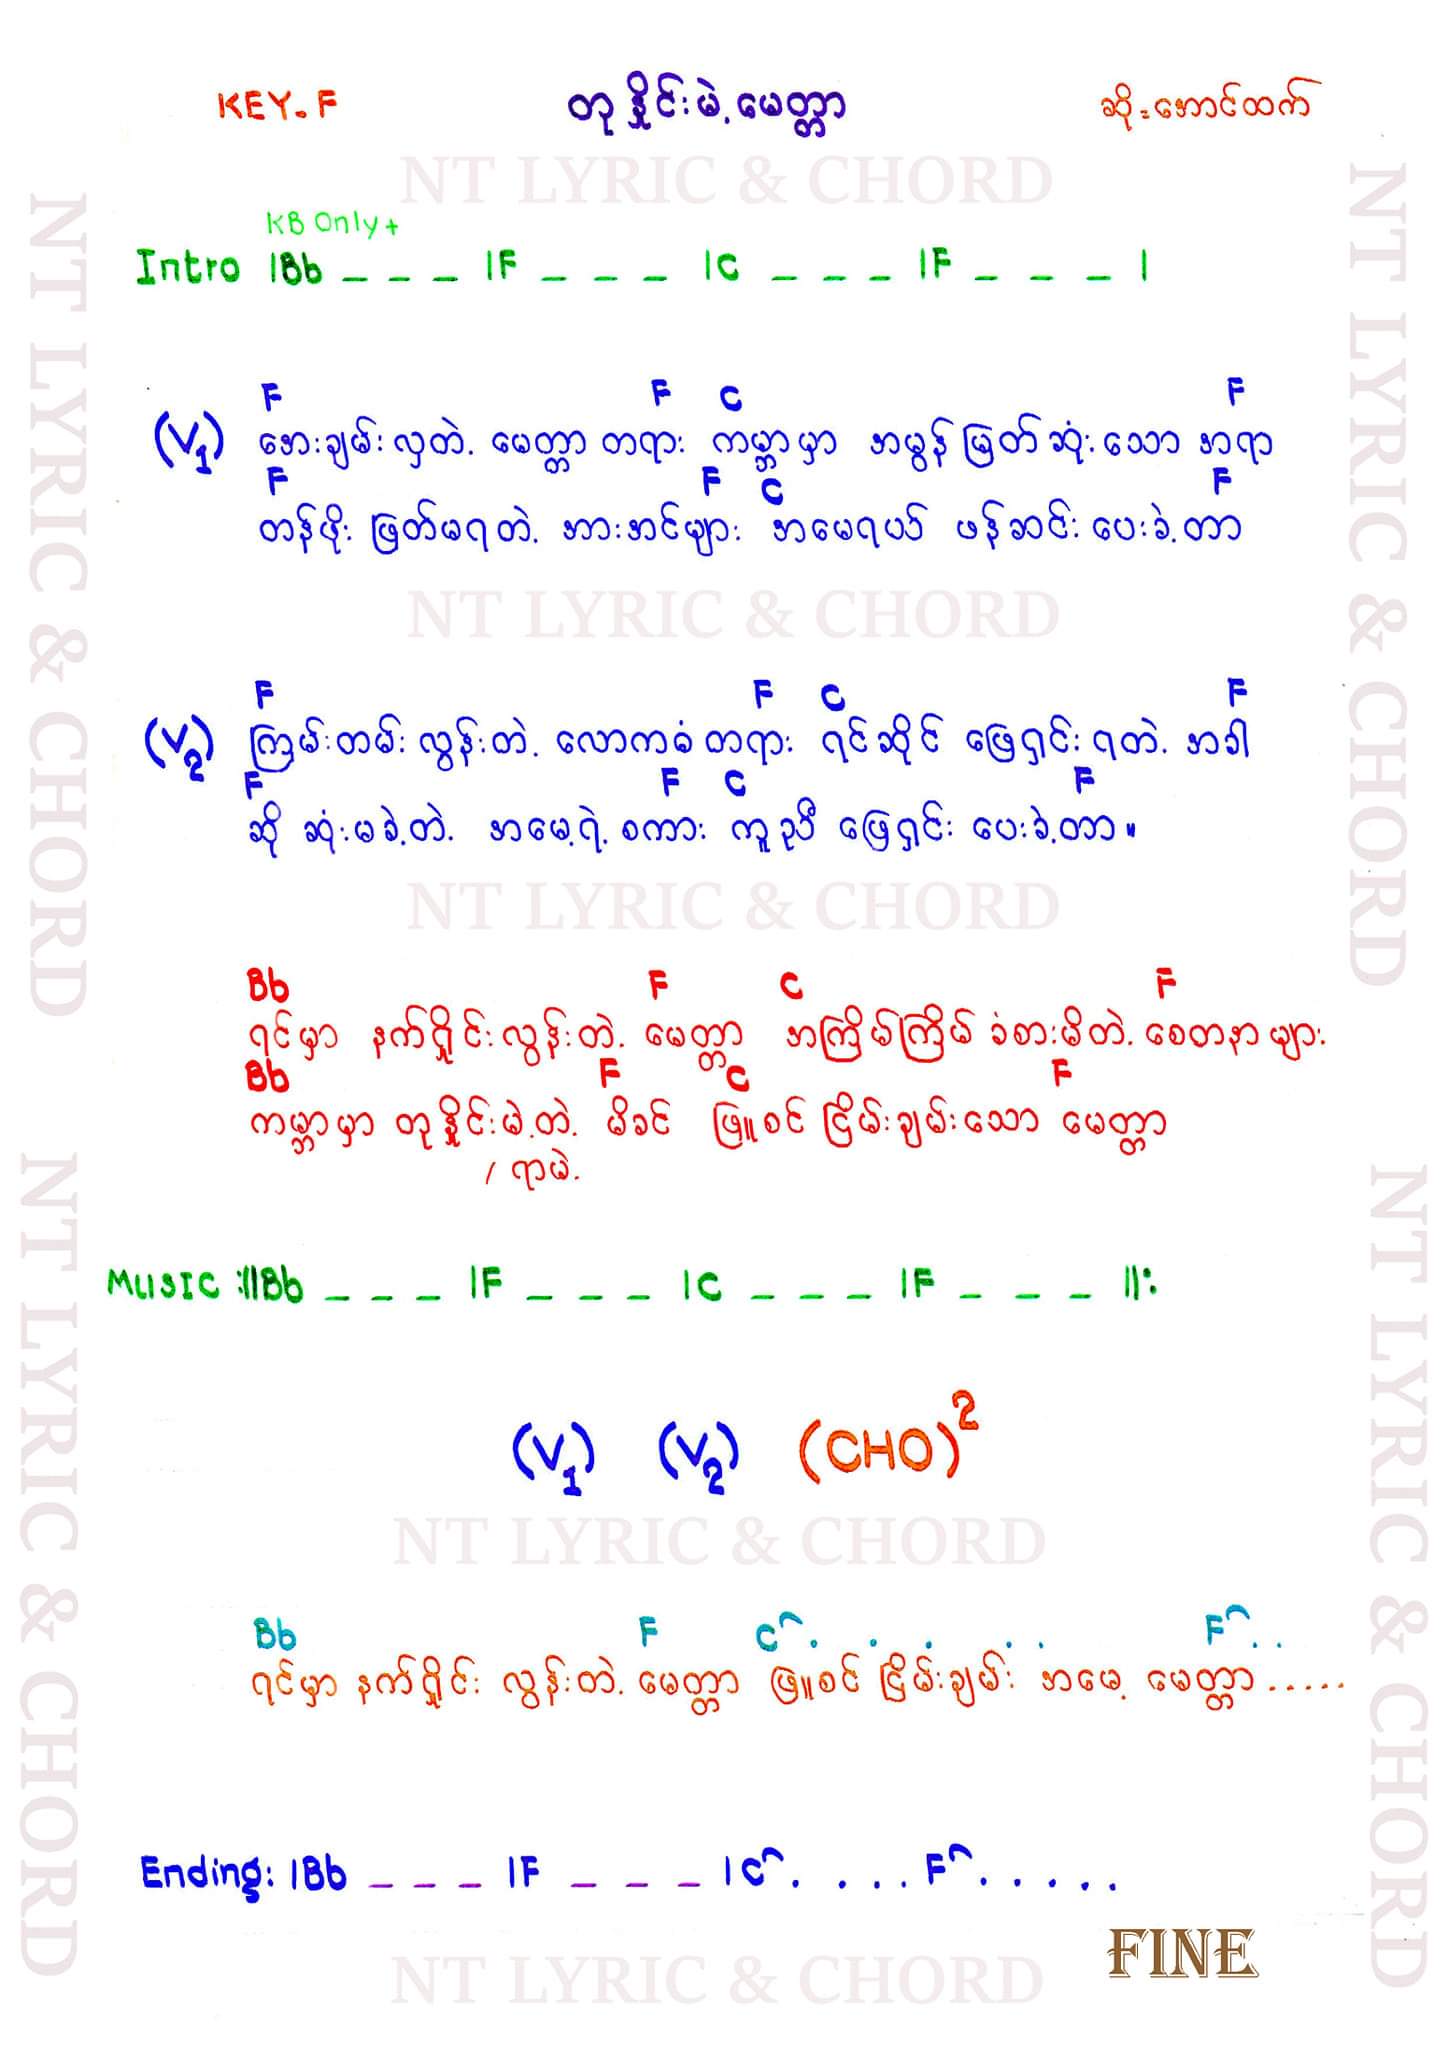 KEY. F
တုနှိုင်းမဲ့မေတ္တာ
ဆို-အောင်ထက်
NT LYRIC & CHORD
KB Only +
Intro |Bb _ _ _ |F _ _ _ |C _ _ _ |F _ _ _ |
F F C F
(V1) အေးချမ်းလှတဲ့ မေတ္တာတရား ကမ္ဘာမှာ အမွန်မြတ်ဆုံးသော အရာ
F F C F
တန်ဖိုး ဖြတ်မရတဲ့ အားအင်များ အမေရယ် ဖန်ဆင်းပေးခဲ့တာ
NT LYRIC & CHORD
F F C F
(V2) ကြမ်းတမ်းလွန်းတဲ့ လောကဓံတရား ရင်ဆိုင် ဖြေရှင်းရတဲ့ အခါ
F F C F
ဆို ဆုံးမခဲ့တဲ့ အမေ့ရဲ့စကား ကူညီ ဖြေရှင်း ပေးခဲ့တာ။
NT LYRIC & CHORD
Bb F C F
ရင်မှာ နက်ရှိုင်းလွန်းတဲ့ မေတ္တာ အကြိမ်ကြိမ် ခံစားမိတဲ့ စေတနာများ
Bb F C F
ကမ္ဘာမှာ တုနှိုင်းမဲ့တဲ့ မိခင် ဖြူစင် ငြိမ်းချမ်းသော မေတ္တာ
/ ရာမဲ့
MUSIC :||Bb _ _ _ |F _ _ _ |C _ _ _ |F _ _ _ ||:
(V1) (V2) (CHO)²
NT LYRIC & CHORD
Bb F C . . . . . F . .
ရင်မှာ နက်ရှိုင်း လွန်းတဲ့ မေတ္တာ ဖြူစင် ငြိမ်းချမ်း အမေ့ မေတ္တာ .....
Ending: |Bb _ _ _ |F _ _ _ |C . . . . F . . . . .
FINE
NT LYRIC & CHORD
NT LYRIC & CHORD
NT LYRIC & CHORD
NT LYRIC & CHORD
NT LYRIC & CHORD